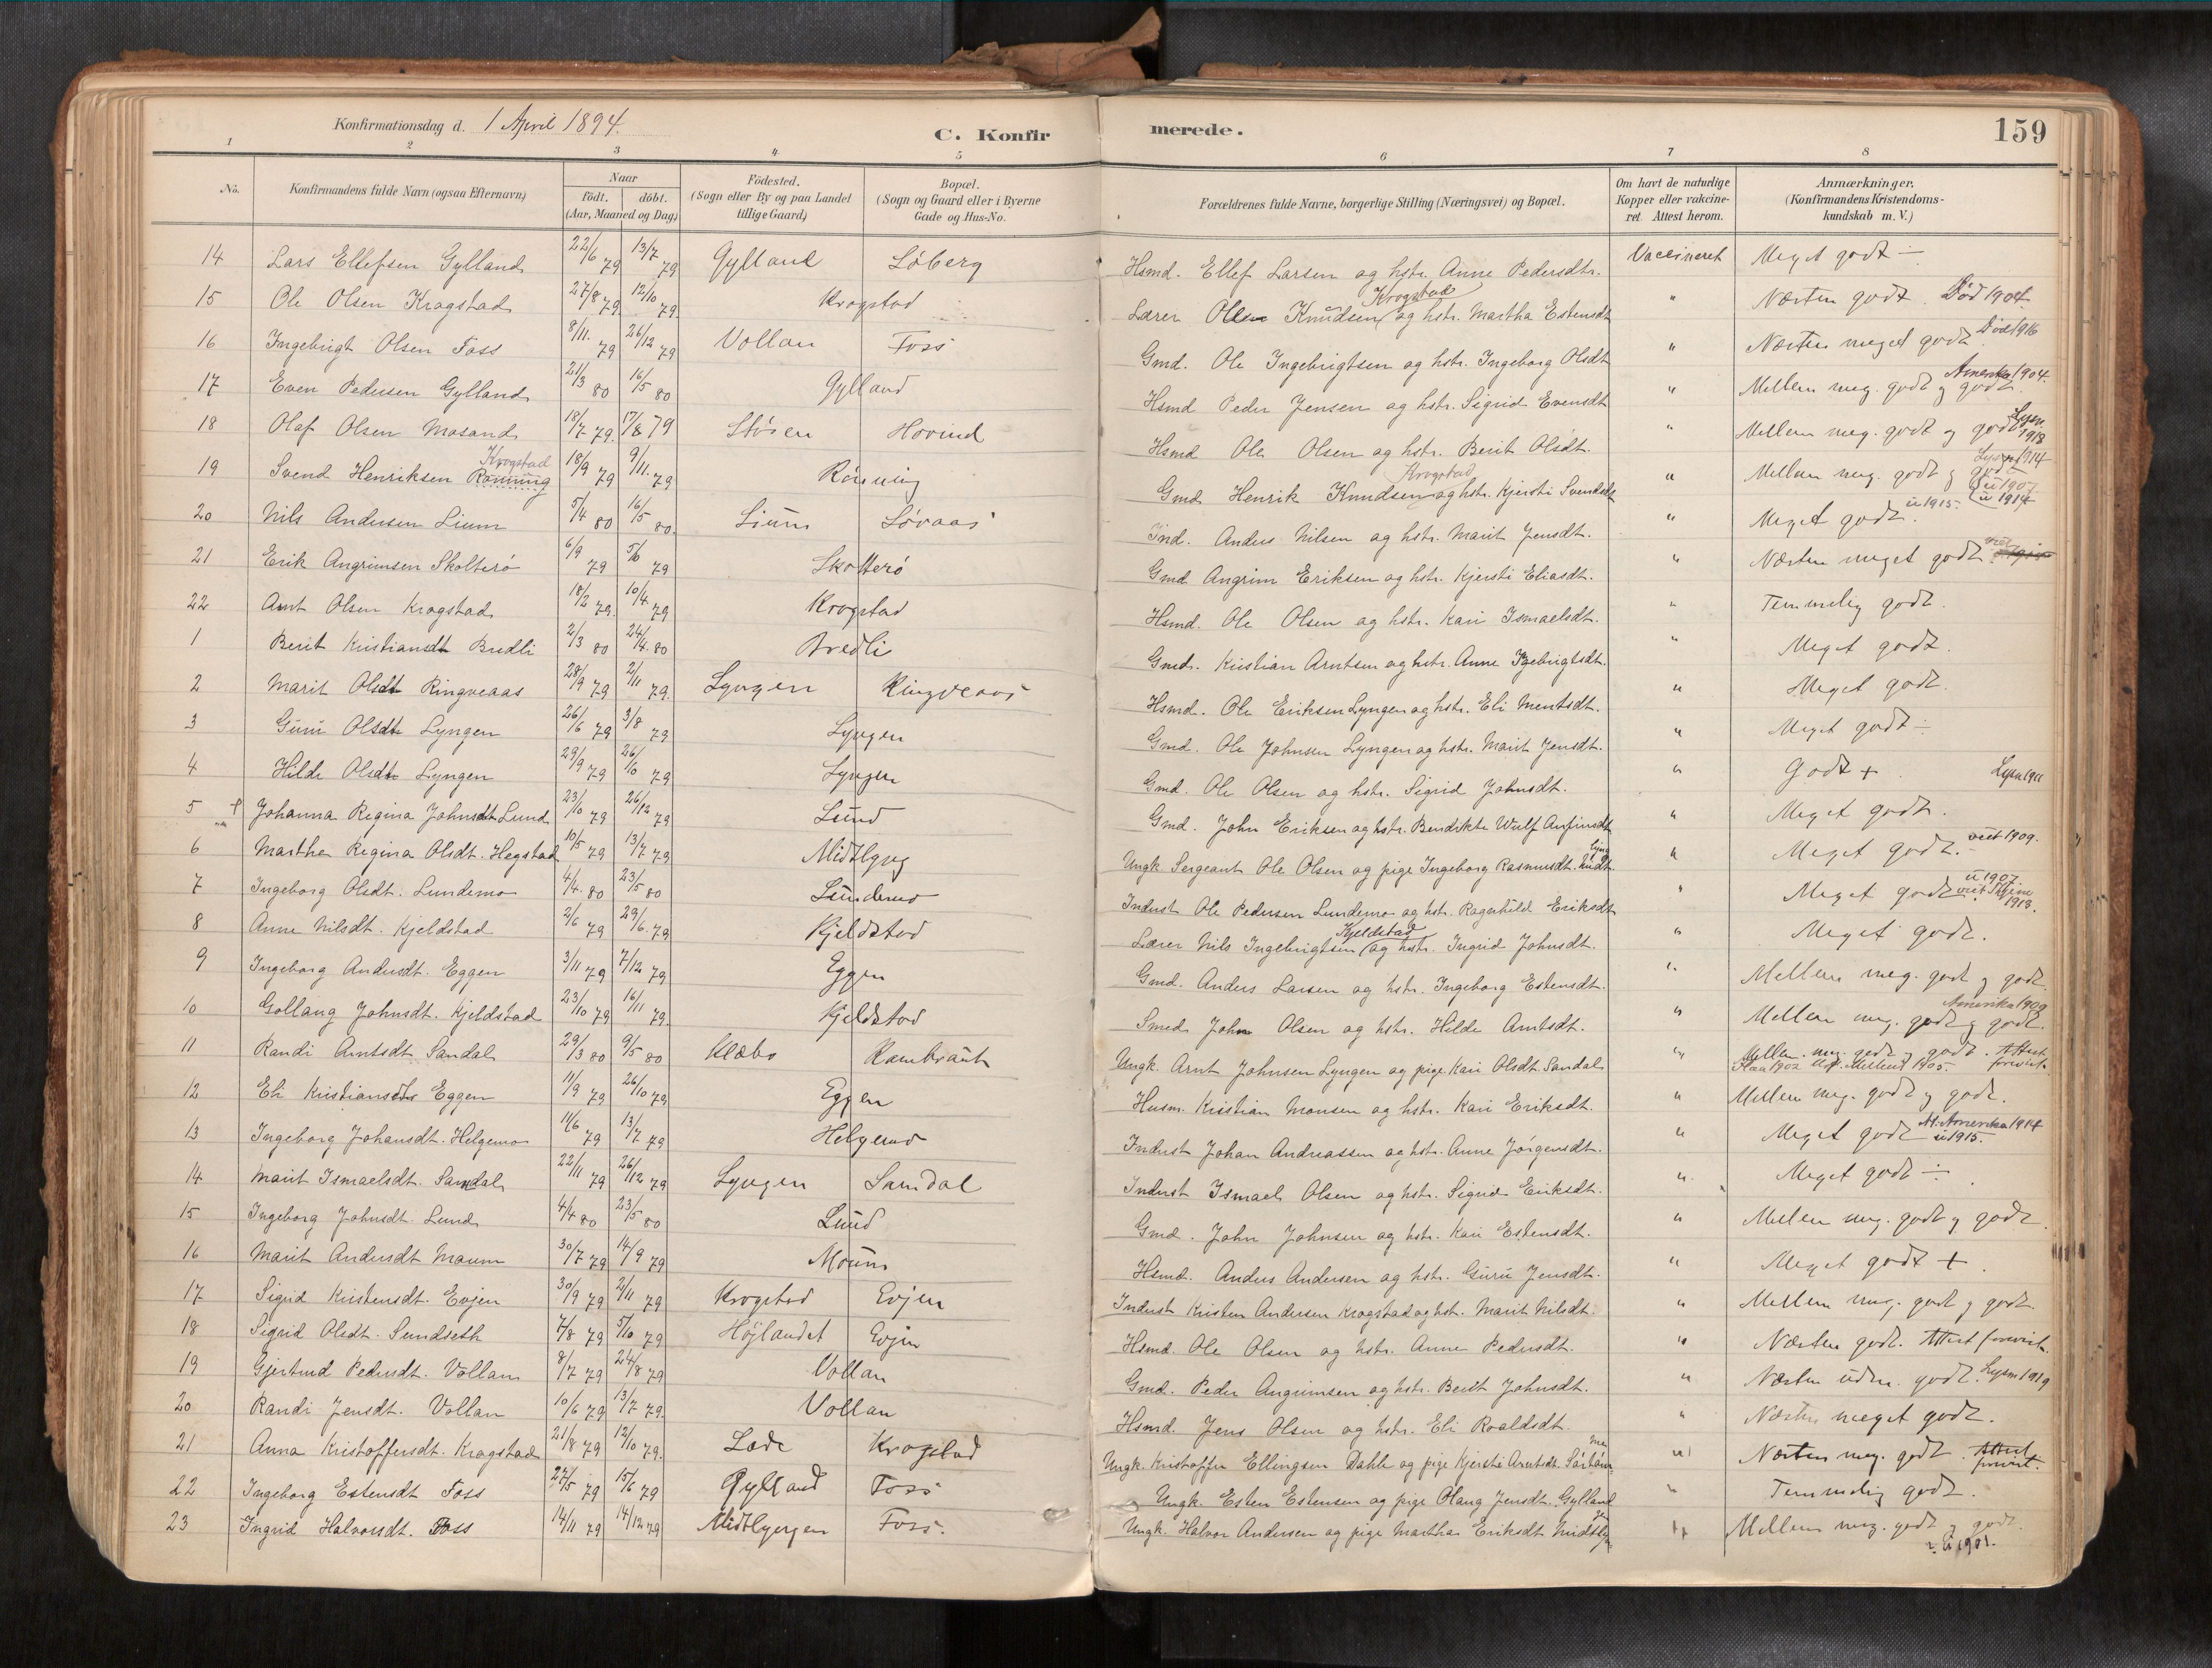 Konfirmationsdag d. 1 April 1894.
C. Konfirmerede.
159
1 2 3 4 5 6 7 8
No. Konfirmandens fulde Navn (ogsaa Efternavn) Naar født. døbt. (Aar, Maaned og Dag) Fødested. (Sogn eller By og paa Landet tillige Gaard) Bopæl. (Sogn og Gaard eller i Byerne Gade og Hus-No. Forældrenes fulde Navne, borgerlige Stilling (Næringsvei) og Bopæl. Om havt de naturlige Kopper eller vakcineret. Attest herom. Anmærkninger. (Konfirmandens Kristendomskundskab m. V.)
14 Lars Ellefsen Gylland 22/6 79 13/7 79 Gylland Løberg Hsmd. Ellef Larsen og hstr. Anne Pedersdtr. Vaccineret Meget godt ÷
15 Ole Olsen Krogstad 27/8 79 12/10 79. Krogstad Lærer Ole Knudsen Krogstad og hstr. Martha Estensdt " Næsten godt. Død 1904
16 Ingebrigt Olsen Foss 8/11. 79 26/12 79 Vollan Foss Gmd. Ole Ingebrigtsen og hstr. Ingeborg Olsdt " Næsten meget godt Død 1916
17 Even Pedersen Gylland 21/3 80 16/5 80 Gylland Hsmd Peder Jensen og hstr. Sigrid Evensdt " Mellem meg. godt og godt. Amerika 1904.
18 Olaf Olsen Mosand 18/7 79. 17/8 79 Støren Hovind Hsmd Ole Olsen og hstr. Berit Olsdt. " Mellem meg. godt og godt Lysn 1918
19 Svend Henriksen Rönning Krogstad 18/9 79 9/11. 79 Rønning Gmd Henrik Knudsen Krogstad og hstr. Kjersti Svendsdt " Mellem meg. godt og godt Lysn 1914 u 1907
20 Nils Andersen Lium 5/4 80 16/5 80. Lium Løvaas Ind. Anders Nilsen og hstr. Marit Jensdt. " Meget godt. u 1915. u 1914
21 Erik Angrimsen Skolterø 6/9 79 5/10 79 Skolterø Gmd Angrim Eriksen og hstr. Kjersti Eliasdt. " Næsten meget godt
22 Arnt Olsen Krogstad 18/2 79. 10/4 79 Krogstad Hsmd. Ole Olsen og hstr. Kari Ismaelsdt. " Temmelig godt.
1 Berit Kristiansdt Bredli 2/3 80 24/4. 80 Bredli Gmd. Kristian Arntsen og hstr. Anne Ingebrigtsdt. " Meget godt.
2 Marit Olsdt Ringveaas 28/9 79 2/11 79. Lyngen Ringveaas Hsmd. Ole Eriksen Lyngen og hstr. Eli Mentsdt. " Meget godt.
3 Guru Olsdt Lyngen 26/6 79 3/8 79 Lyngen Gmd. Ole Johnsen Lyngen og hstr. Marit Jensdt. " Meget godt ÷
4 Hilde Olsdt Lyngen 29/9 79 26/10 79 Lyngen Gmd. Ole Olsen og hstr. Sigrid Johnsdt. " Godt + Lysn 1911
5 Johanna Regina Johnsdt Lund 23/10 79 26/12 79 Lund Gmd. John Eriksen og hstr. Bendikte Wulf Anfinsdt " Meget godt.
6 Marthe Regina Olsdt. Hegstad 10/5 79 13/7 79 Midtlyng Ungk Sergeant Ole Olsen og pige Ingeborg Rasmusdt. Midtlyng " Meget godt. viet 1909.
7 Ingeborg Olsdt. Lundemo 4/4. 80 23/5 80 Lundemo Inderst Ole Pedersen Lundemo og hstr. Ragnhild Eriksdt " Meget godt u 1907 viet 1913.
8 Anne Nilsdt. Kjeldstad 2/6 79 29/6. 79 Kjeldstad Lærer Nils Ingebrigtsen Kjeldstad og hstr. Ingrid Johnsdt. " Meget godt.
9 Ingeborg Andersdt. Eggen 3/11 79 7/12 79 Eggen Gmd. Anders Larsen og hstr. Ingeborg Estensdt. " Mellem meg. godt og godt.
10 Gollaug Johnsdt. Kjeldstad 23/10 79 16/11 79. Kjeldstad Smed John Olsen og hstr. Hilde Arntsdt. " Mellem meg. godt og godt. Amerika 1909
11 Randi Arntsdt Sandal 29/3 80 9/5 80 Klæbo Ungk. Arnt Johnsen Lyngen og pige Kari Olsdt. Sandal " Mellem meg. godt og godt. Attest forevist.
12 Eli Kristiansdt Eggen 11/9 79 26/10 79 Eggen Husm. Kristian Monsen og hstr. Kari Eriksdt. " Mellem meg. godt og godt.
13 Ingeborg Johansdt. Helgemo 11/6 79 13/7 79 Helgemo Inderst Johan Andreassen og hstr. Anne Jørgensdt. " Meget godt At. Amerika 1914 u 1915.
14 Marit Ismaelsdt. Sandal 22/11 79 26/12 79 Lyngen Sandal Inderst Ismael Olsen og hstr. Sigrid Eriksdt. " Meget godt ÷
15 Ingeborg Johnsdt. Lund 4/4 80 23/5 80 Lund Gmd. John Johnsen og hstr. Kari Estensdt. " Mellem meg. godt og godt.
16 Marit Andersdt Moum 30/7 79 14/9 79 Moum Hsmd. Anders Andersen og hstr. Guru Jensdt. " Meget godt +
17 Sigrid Kristensdt. Evjen 30/9 79 2/11 79 Krogstad Evjen Inderst Kristen Andersen Krogstad og hst. Marit Nilsdt. " Mellem meg. godt og godt
18 Sigrid Olsdt. Sundseth 7/8 79 5/10 79 Højlandet Evjen Hsmd. Ole Olsen og hstr. Anne Pedersdt. " Næsten godt. Attest forevist.
19 Gjertrud Pedersdt. Vollan 8/7 79 24/8 79 Vollan Gmd. Peder Angrimsen og hstr. Berit Johnsdt. " Næsten udm. godt. Lysn 1919
20 Randi Jensdt. Vollan 10/6 79 13/7 79. Vollan Hsmd. Jens Olsen og hstr. Eli Roaldsdt. " Næsten meget godt.
21 Anna Kristoffersdt. Krogstad 21/8 79 12/10 79. Lade Krogstad Ungk. Kristoffer Ellingsen Dahle og pige Kjersti Arntsdt. " Næsten meg. godt. Attest forevist.
22 Ingeborg Estensdt Foss 27/5 79 15/6 79 Gylland Foss Ungk. Esten Estensen og pige Olaug Jensdt. Gylland " Temmelig godt.
23 Ingrid Halvorsdt. Foss 14/11 79 14/12 79 Midtlyngen Foss. Ungk. Halvor Andersen og pige Martha Eriksdt Midtlyngen " Mellem meg. godt og godt. u 1901.